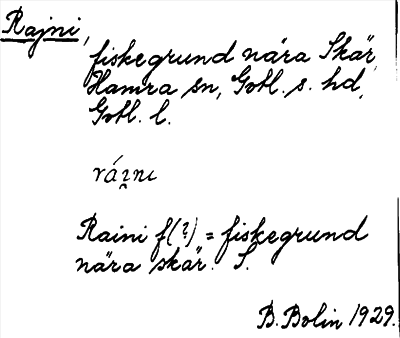 Rajni,
fiskegrund nära Skär,
Hamra sn, Gotl. s. hd,
Gotl. l.
rái̯nı
Raini f(?) = fiskegrund
nära skär. S.
B. Bolin 1929.